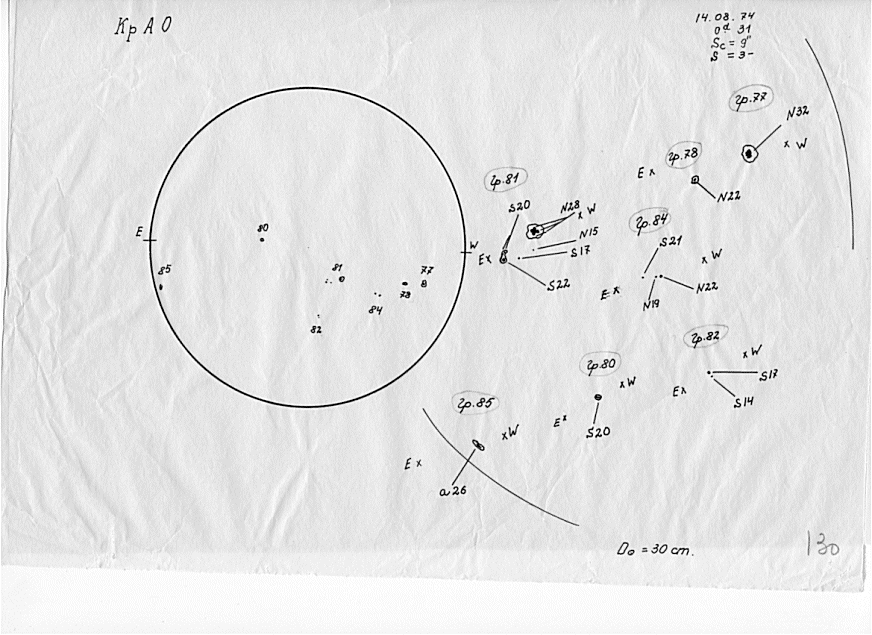 КрАО
14.08.74
0ᵈ 31
Sc = 9"
S = 3-
E
W
80
85
81
84
82
77
78
гр.77
N32
x W
гр.78
E x
N22
гр.81
S20
N28
x W
N15
Ex
S17
S22
гр.84
S21
x W
E x
N19
N22
гр.82
x W
Ex
S17
S14
гр.80
x W
Ex
S20
гр.85
xW
E x
a26
D₀ = 30 cm.
130